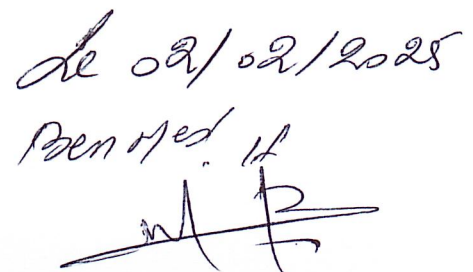 Le 02/02/2025
Ben Med. H